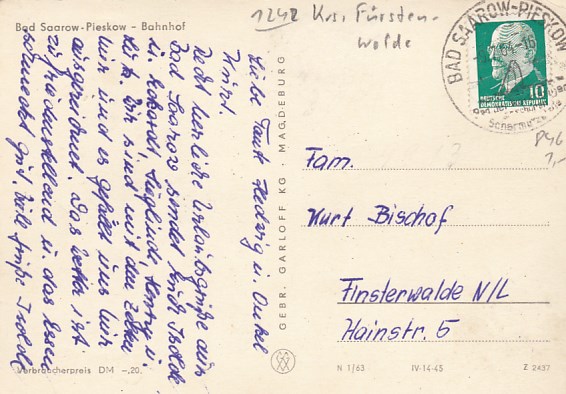 Bad Saarow-Pieskow – Bahnhof
1242 Krs. Fürsten-
walde
BAD SAAROW-PIESKOW
64-16
10
DEUTSCHE
DEMOKRATISCHE REPUBLIK
Scharmützelsee
846
1,-
Liebe Tante Hedwig u. Onkel
Kurt.
Recht herzliche Urlaubsgrüße aus
Bad Saarow sendet Euch Isolde
u. Eckardt, Sieglinde, Henry u.
Wir sind mit dem Zelten
hier und es gefällt uns hier
ausgezeichnet. Das Wetter ist
zufriedenstellend u. das Essen
schmeckt gut. Viele Grüße Isolde
GEBR. GARLOFF KG · MAGDEBURG
Fam.
Kurt Bischof
Finsterwalde N/L
Hainstr. 5
Verbraucherpreis DM –,20.
N 1/63
IV-14-45
Z 2437